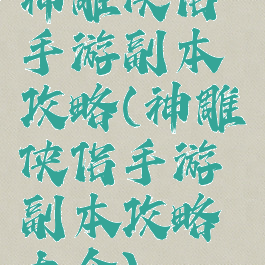 神雕侠侣
手游副本
攻略(神雕
侠侣手游
副本攻略
大全)